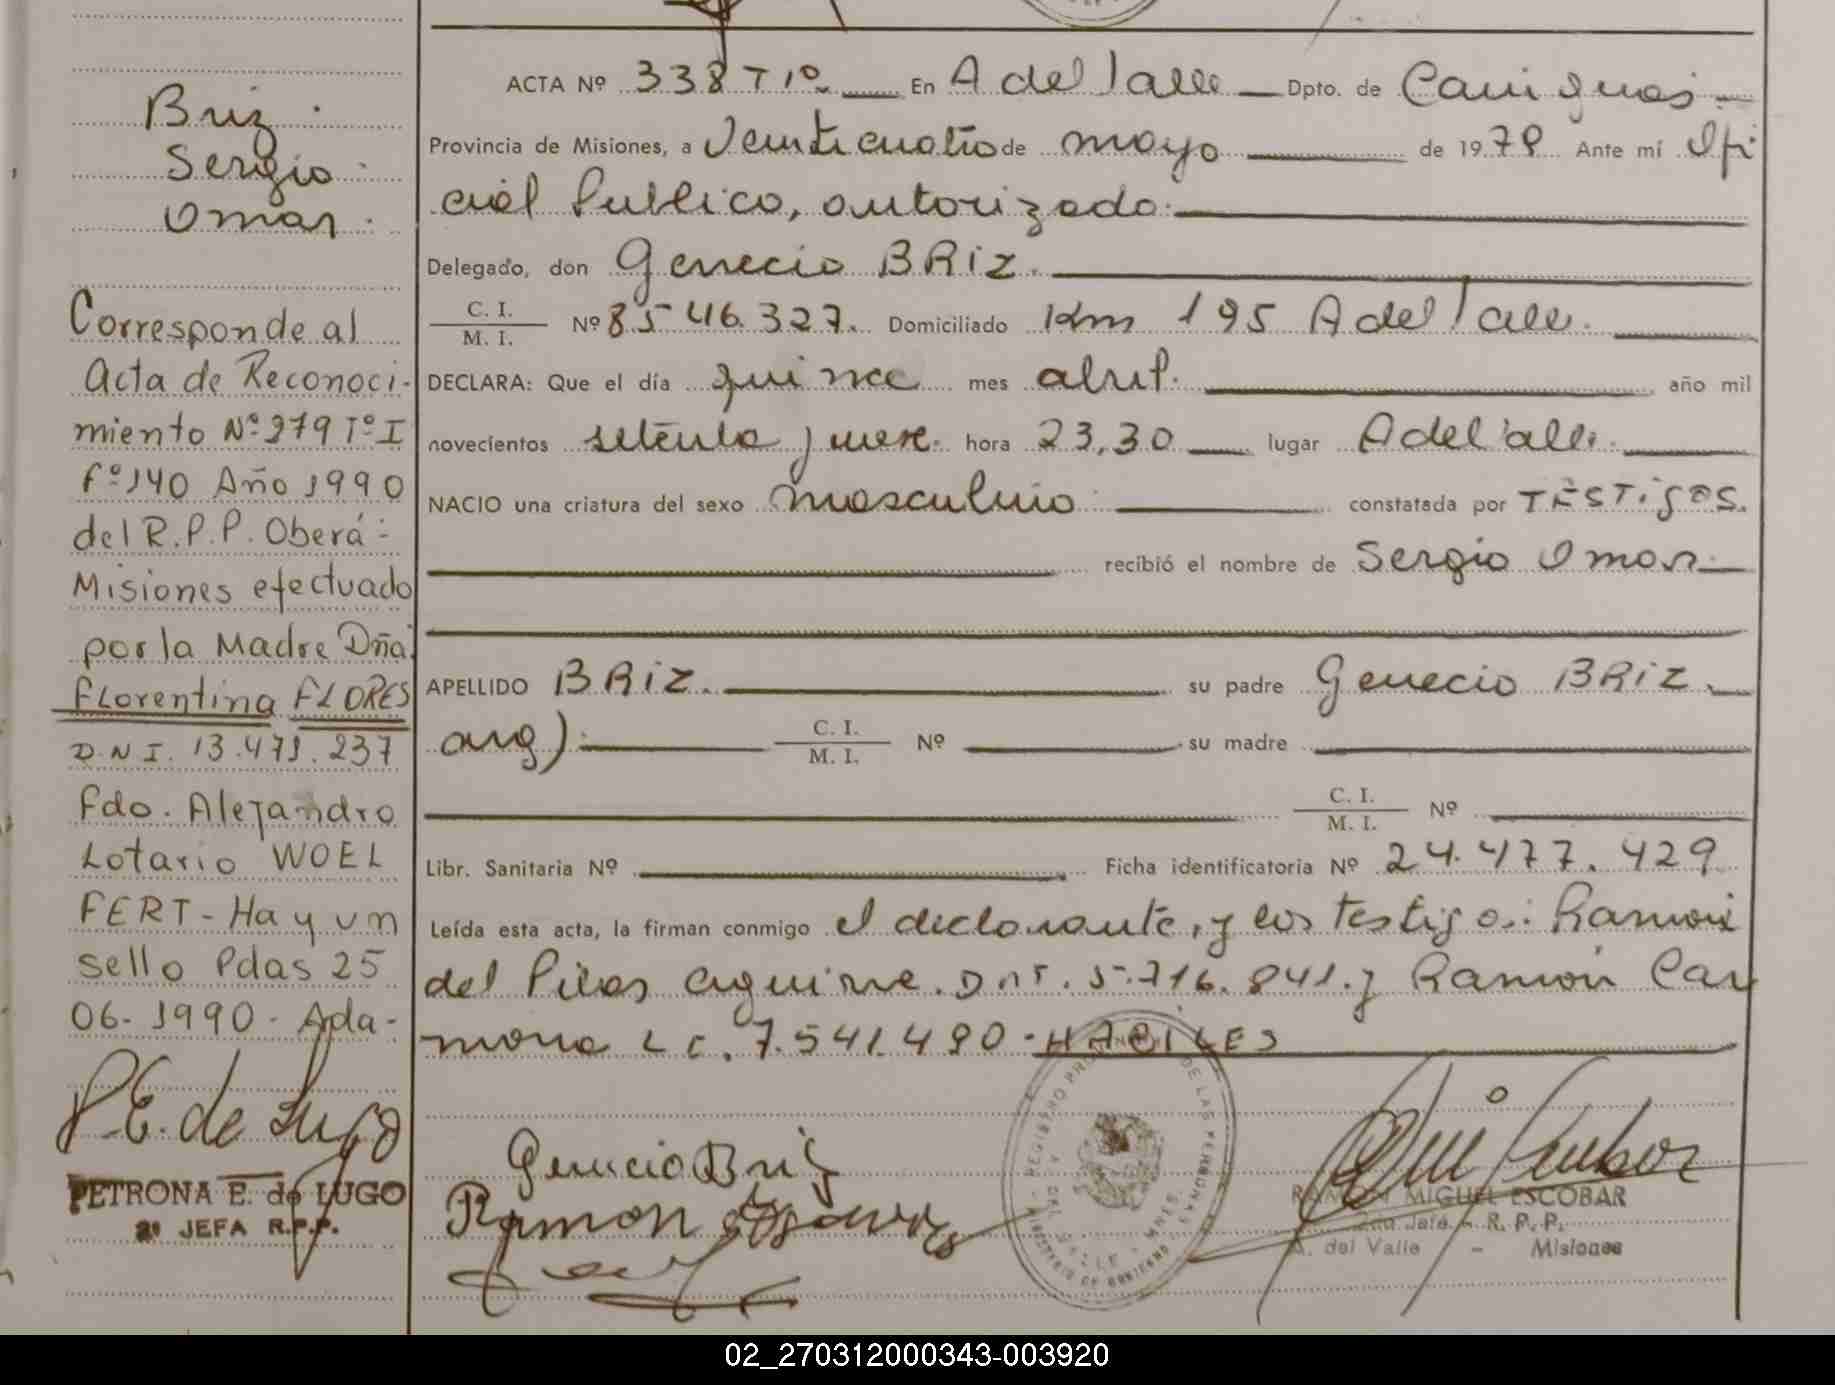 Briz
Sergio
Omar.
Corresponde al
Acta de Reconoci-
miento Nº 279 Tº I
fº 140 Año 1990
del R.P.P. Oberá-
Misiones efectuado
por la Madre Dña.
FLorentina FLORES
D.N.I. 13.471.237
Fdo. Alejandro
Lotario WOEL
FERT - Hay un
sello Pdas 25
06-1990 - Ada-
P.E. de Lugo
PETRONA E. de LUGO
2ª JEFA R.P.P.
ACTA Nº 338 T 1º En A del Valle Dpto. de Cainguas
Provincia de Misiones, a Veinticuatro de mayo de 1979 Ante mí Ofi
cial Publico, autorizado.
Delegado, don Genecio BRIZ.
C. I.
M. I. Nº 8546.327. Domiciliado Km 195 A del Valle.
DECLARA: Que el día quince mes abril. año mil
novecientos setenta y nueve. hora 23,30 lugar A del Valle.
NACIO una criatura del sexo masculino constatada por TESTIGOS.
recibió el nombre de Sergio Omar.
APELLIDO BRIZ. su padre Genecio BRIZ.
arg) C. I.
M. I. Nº su madre
C. I.
M. I. Nº
Libr. Sanitaria Nº Ficha identificatoria Nº 24.477.429
Leída esta acta, la firman conmigo el declarante, y los testigos: Ramon
del Pilar Aguirre. DNI. 5.716.841. y Ramón Car
mona L C. 7.541.490 - HABILES
Genecio Briz
Ramon
REGISTRO PROVINCIAL DE LAS PERSONAS
A. DEL VALLE - MNES.
MINISTERIO DE GOBIERNO
RAMON MIGUEL ESCOBAR
2do. Jefe - R. P. P.
A. del Valle - Misiones
02_270312000343-003920